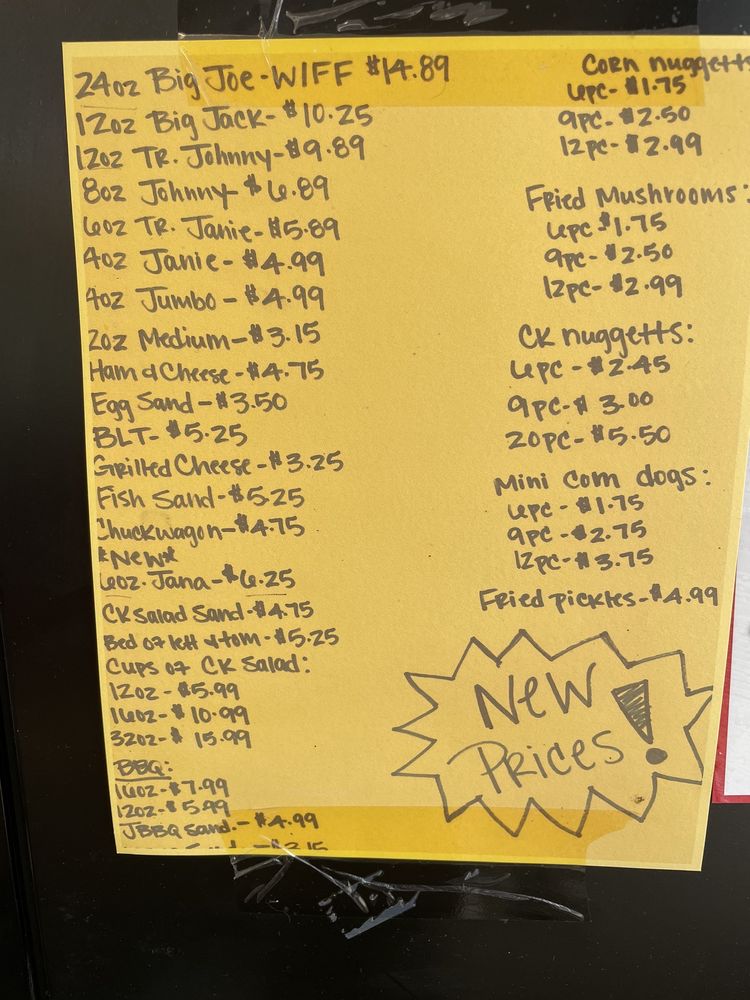 24oz Big Joe-W/FF $14.89
12oz Big Jack- $10.25
12oz TR. Johnny-$9.89
8oz Johnny $6.89
6oz TR. Janie-$5.89
4oz Janie-$4.99
4oz Jumbo-$4.99
2oz Medium-$3.15
Ham & Cheese-$4.75
Egg Sand-$3.50
BLT-$5.25
Grilled Cheese-$3.25
Fish Sand-$5.25
Chuckwagon-$4.75
*New*
6oz. Jana-$6.25
CK Salad Sand-$4.75
Bed of lett & tom-$5.25
Cups of CK Salad:
12oz-$5.99
16oz-$10.99
32oz-$15.99
BBQ:
16oz-$7.99
12oz-$5.99
JBBQ Sand.-$4.99
Sand-$3.15
Corn nuggetts
6pc-$1.75
9pc-$2.50
12pc-$2.99
Fried Mushrooms:
6pc $1.75
9pc-$2.50
12pc-$2.99
CK nuggetts:
6pc-$2.45
9pc-$3.00
20pc-$5.50
Mini corn dogs:
6pc-$1.75
9pc-$2.75
12pc-$3.75
Fried pickles-$4.99
New
Prices!